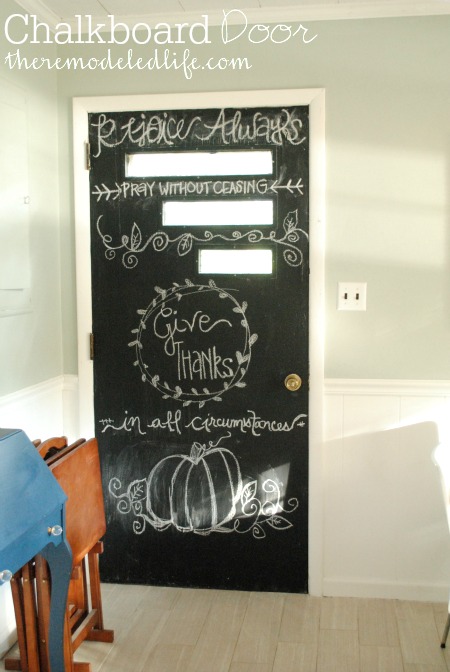 Chalkboard Door
theremodeledlife.com
Rejoice Always
PRAY WITHOUT CEASING
Give
THANKS
in all circumstances